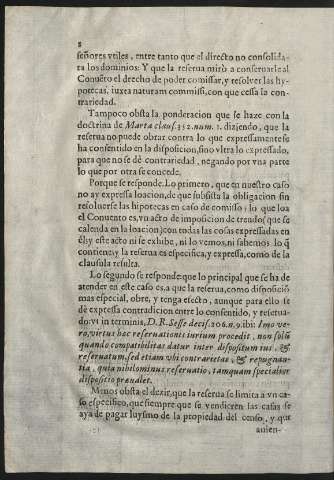 8
señores vtiles, entre tanto que el directo no consolida-
ra los dominios: Y que la reserua mirò a conseruarle al
Conuẽto el drecho de poder comissar, y resolver las hy-
potecas, iuxta naturam commissi, con que cessa la con-
trariedad.
Tampoco obsta la ponderacion que le haze con la
doctrina de Marta claus. 352. num. 1. diziendo, que la
reserua no puede obrar contra lo que expressamente se
ha consentido en la disposicion, sino vltra lo expressado,
para que no se dè contrariedad, negando por vna parte
lo que por otra se concede.
Porque se responde. Lo primero, que en nuestro caso
no ay expressa loacion, de que subsista la obligacion sin
resoluerse las hipotecas en caso de comisso; la que loa
el Conuento es, vn acto de imposicion de treudo (que se
calenda en la loacion) con todas las cosas expressadas en
èl; y este acto ni se exhibe, ni lo vemos, ni sabemos lo q̃
contiene; y la reserua es especifica, y expressa, como de la
clausula resulta.
Lo segundo se responde: que lo principal que se ha de
atender en este caso es, a que la reserua, como disposiciõ
mas especial, obre, y tenga efecto, aunque para ello se
dè expressa contradicion entre lo consentido, y reserua-
do: vt in terminis, D. R. Sesse decis. 206. n. 9. ibi: Imo ve-
ro, virtus hæc reseruationis iurium procedit, non solũ
quando compatibilitas datur inter dispositum ius, &
reseruatum, sed etiam vbi contrarietas, & repugnan-
tia, quia nihilominus reseruatio, tamquam specialior
dispositio præualet.
Menos obsta el dezir, que la reserua se limita a vn ca-
so especifico, que siempre que se vendieren las casas se
aya de pagar luysmo de la propiedad del censo, y que
auien-